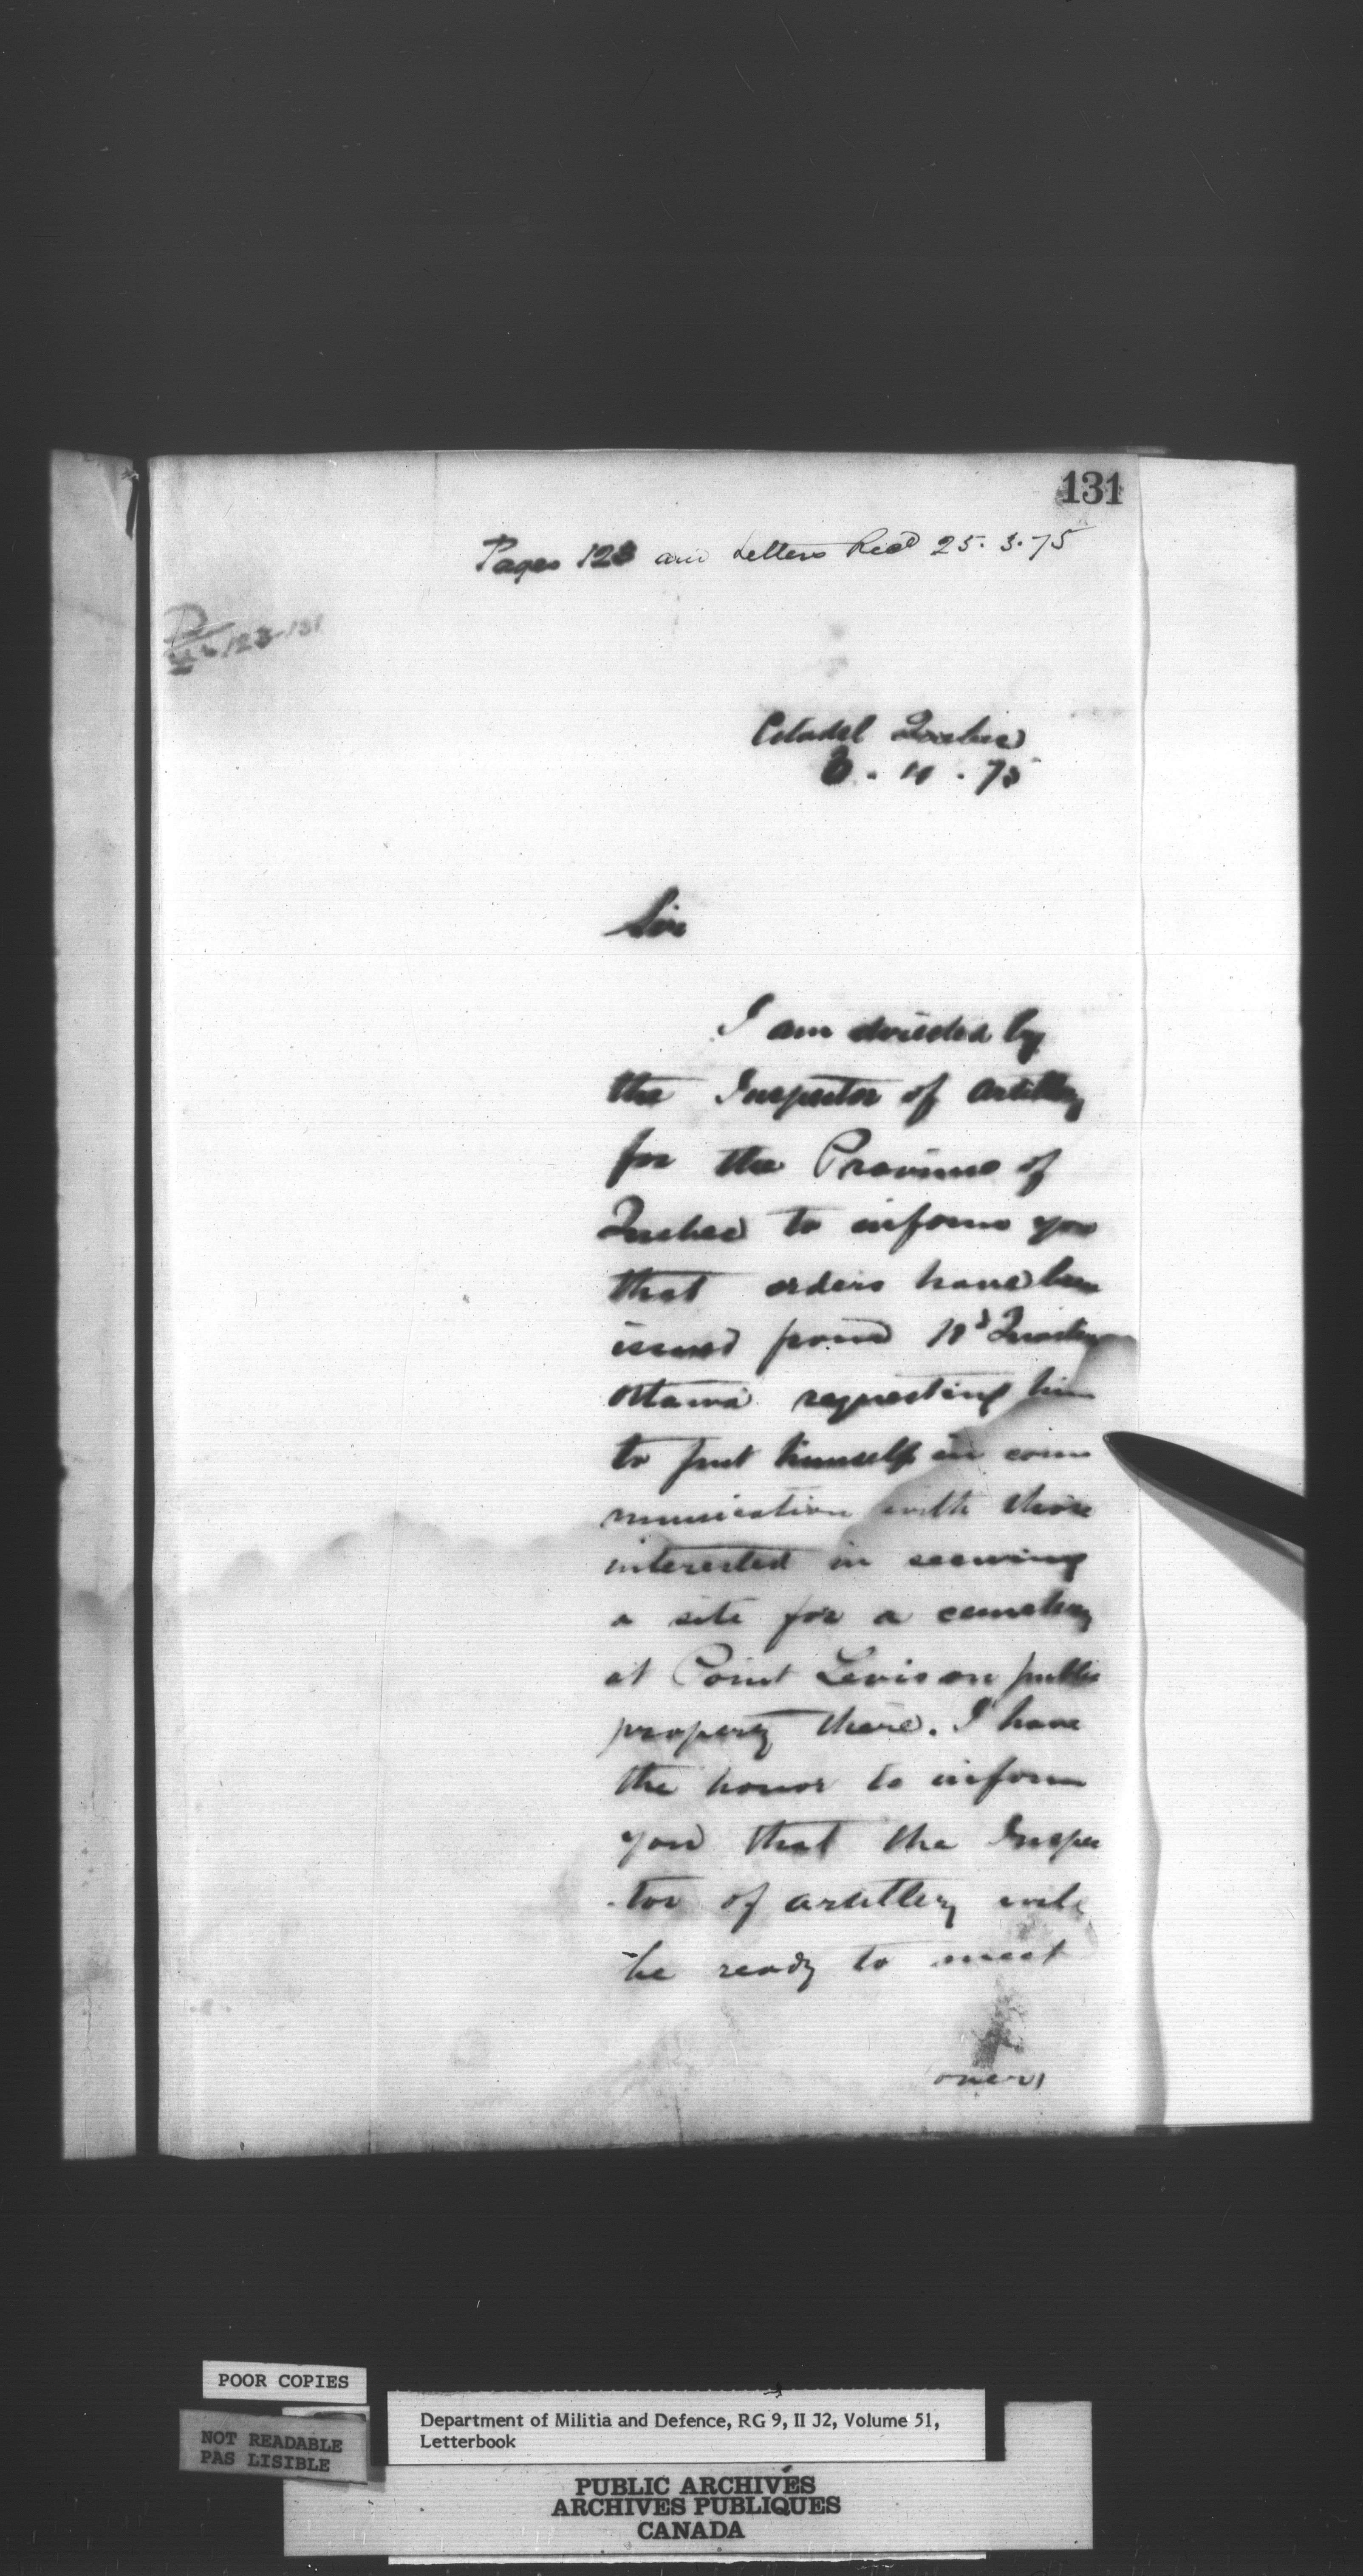 131
Pages 123 and Letters Rec'd 25.3.75
123-131
Citadel Quebec
. 75
Sir
I am directed by
the Inspector of Artillery
for the Province of
Quebec to inform you
that orders have been
issued from Hd Quarters
Ottawa requesting him
to put himself in com
munication with those
interested in securing
a site for a cemetery
at Point Levis on public
property there. I have
the honor to inform
you that the Inspec
-tor of artillery will
be ready to meet
POOR COPIES
NOT READABLE
PAS LISIBLE
Department of Militia and Defence, RG 9, II J2, Volume 51,
Letterbook
PUBLIC ARCHIVES
ARCHIVES PUBLIQUES
CANADA